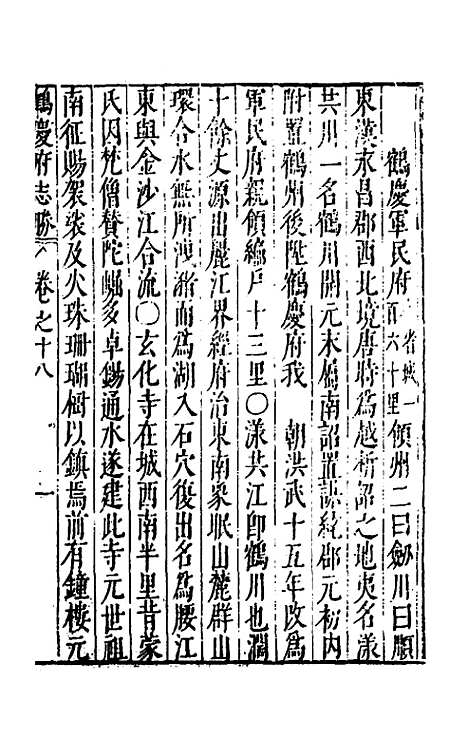 鶴慶軍民府省城一百六十里領州二曰劒川曰順
東漢永昌郡西北境唐時為越析詔之地夷名漾
共川一名鶴川開元末屬南詔置謀統郡元初内
附置鶴州後陞鶴慶府我 朝洪武十五年改為
軍民府親領編戶十三里〇漾共江卽鶴川也濶
十餘丈源出麗江界經府治東南象眠山麓群山
環合水無所洩瀦而為湖入石穴復出名為腰江
東與金沙江合流〇玄化寺在城西南半里昔蒙
氏因梵僧贊陀崛多卓錫通水遂建此寺元世祖
南征賜袈裟及火珠珊瑚樹以鎮焉前有鐘樓元
鶴慶府志勝 卷之十八 一